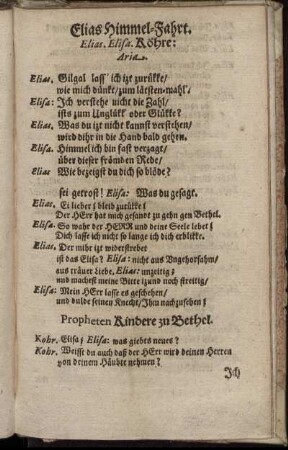 Elias Himmel-Fahrt.
Elias. Elisa. Köhre:
Aria.
Elias. Gilgal lass' ich izt zurükke/
wie mich dünkt/ zum lätsten-mahl.
Elisa: Ich verstehe nicht die Zahl/
ists zum Unglükk oder Glükke?
Elias. Was du izt nicht kannst verstehen/
wird dihr in die Hand bald gehen.
Elisa. Himmel ich bin fast verzagt/
über dieser främden Rede/
Elias Wie bezeigst du dich so blöde?
sei getrost! Elisa: Was du gesagt.
Elias. Ei lieber/ bleib zurükke/
Der HErr hat mich gesandt zu gehn gen Bethel.
Elisa. So wahr der HERR und deine Seele lebet/
Dich lasse ich nicht so lange ich dich erblikke.
Elias. Der mihr izt widerstrebet
ist das Elisa? Elisa: nicht aus Ungehorsahm/
aus träuer Liebe, Elias: unzeitig/
und machest meine Bitte izund noch streitig/
Elisa: Mein HErr lasse es geschehen/
und dulde seinen Knecht/ Ihm nachzusehen/
Propheten Kindere zu Bethel.
Kohr. Elisa/ Elisa: was giebts neues?
Kohr. Weisst du auch daß der HErr wird deinen Herren
von deinem Häubte nehmen?
Ich